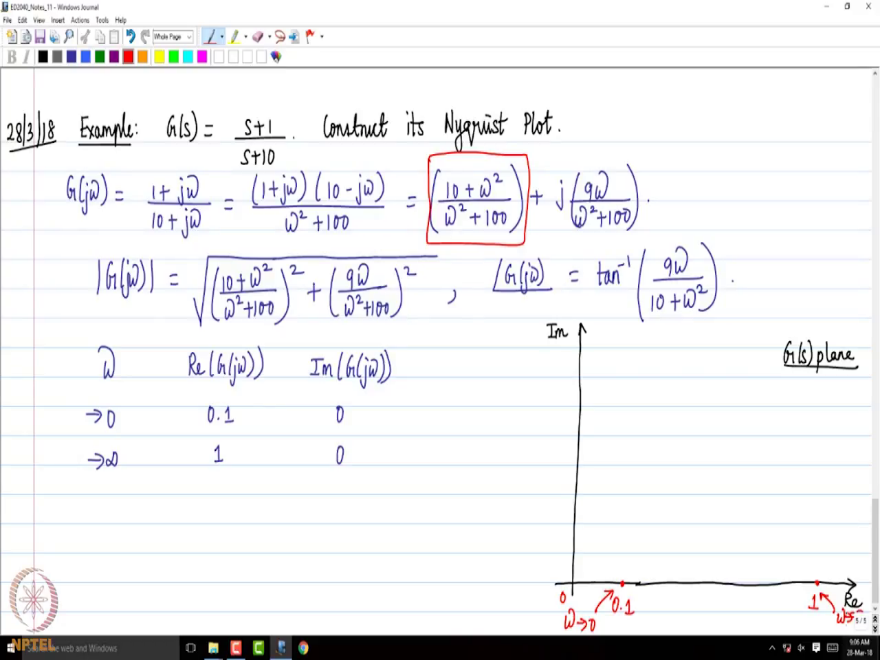 ED2040_Notes_11 - Windows Journal
File Edit View Insert Actions Tools Help
Whole Page
B I
28/3/18 Example: G(s) = (s+1)/(s+10). Construct its Nyquist Plot.
G(jω) = (1+jω)/(10+jω) = (1+jω)(10-jω)/(ω²+100) = ((10+ω²)/(ω²+100)) + j(9ω/(ω²+100)).
|G(jω)| = √(((10+ω²)/(ω²+100))² + (9ω/(ω²+100))²), ∠G(jω) = tan⁻¹(9ω/(10+ω²)).
Im
G(s) plane
ω Re(G(jω)) Im(G(jω))
→0 0.1 0
→∞ 1 0
0 0.1 1 Re
ω→0
5/5
NPTEL
the web and Windows
9:06 AM
28-Mar-18